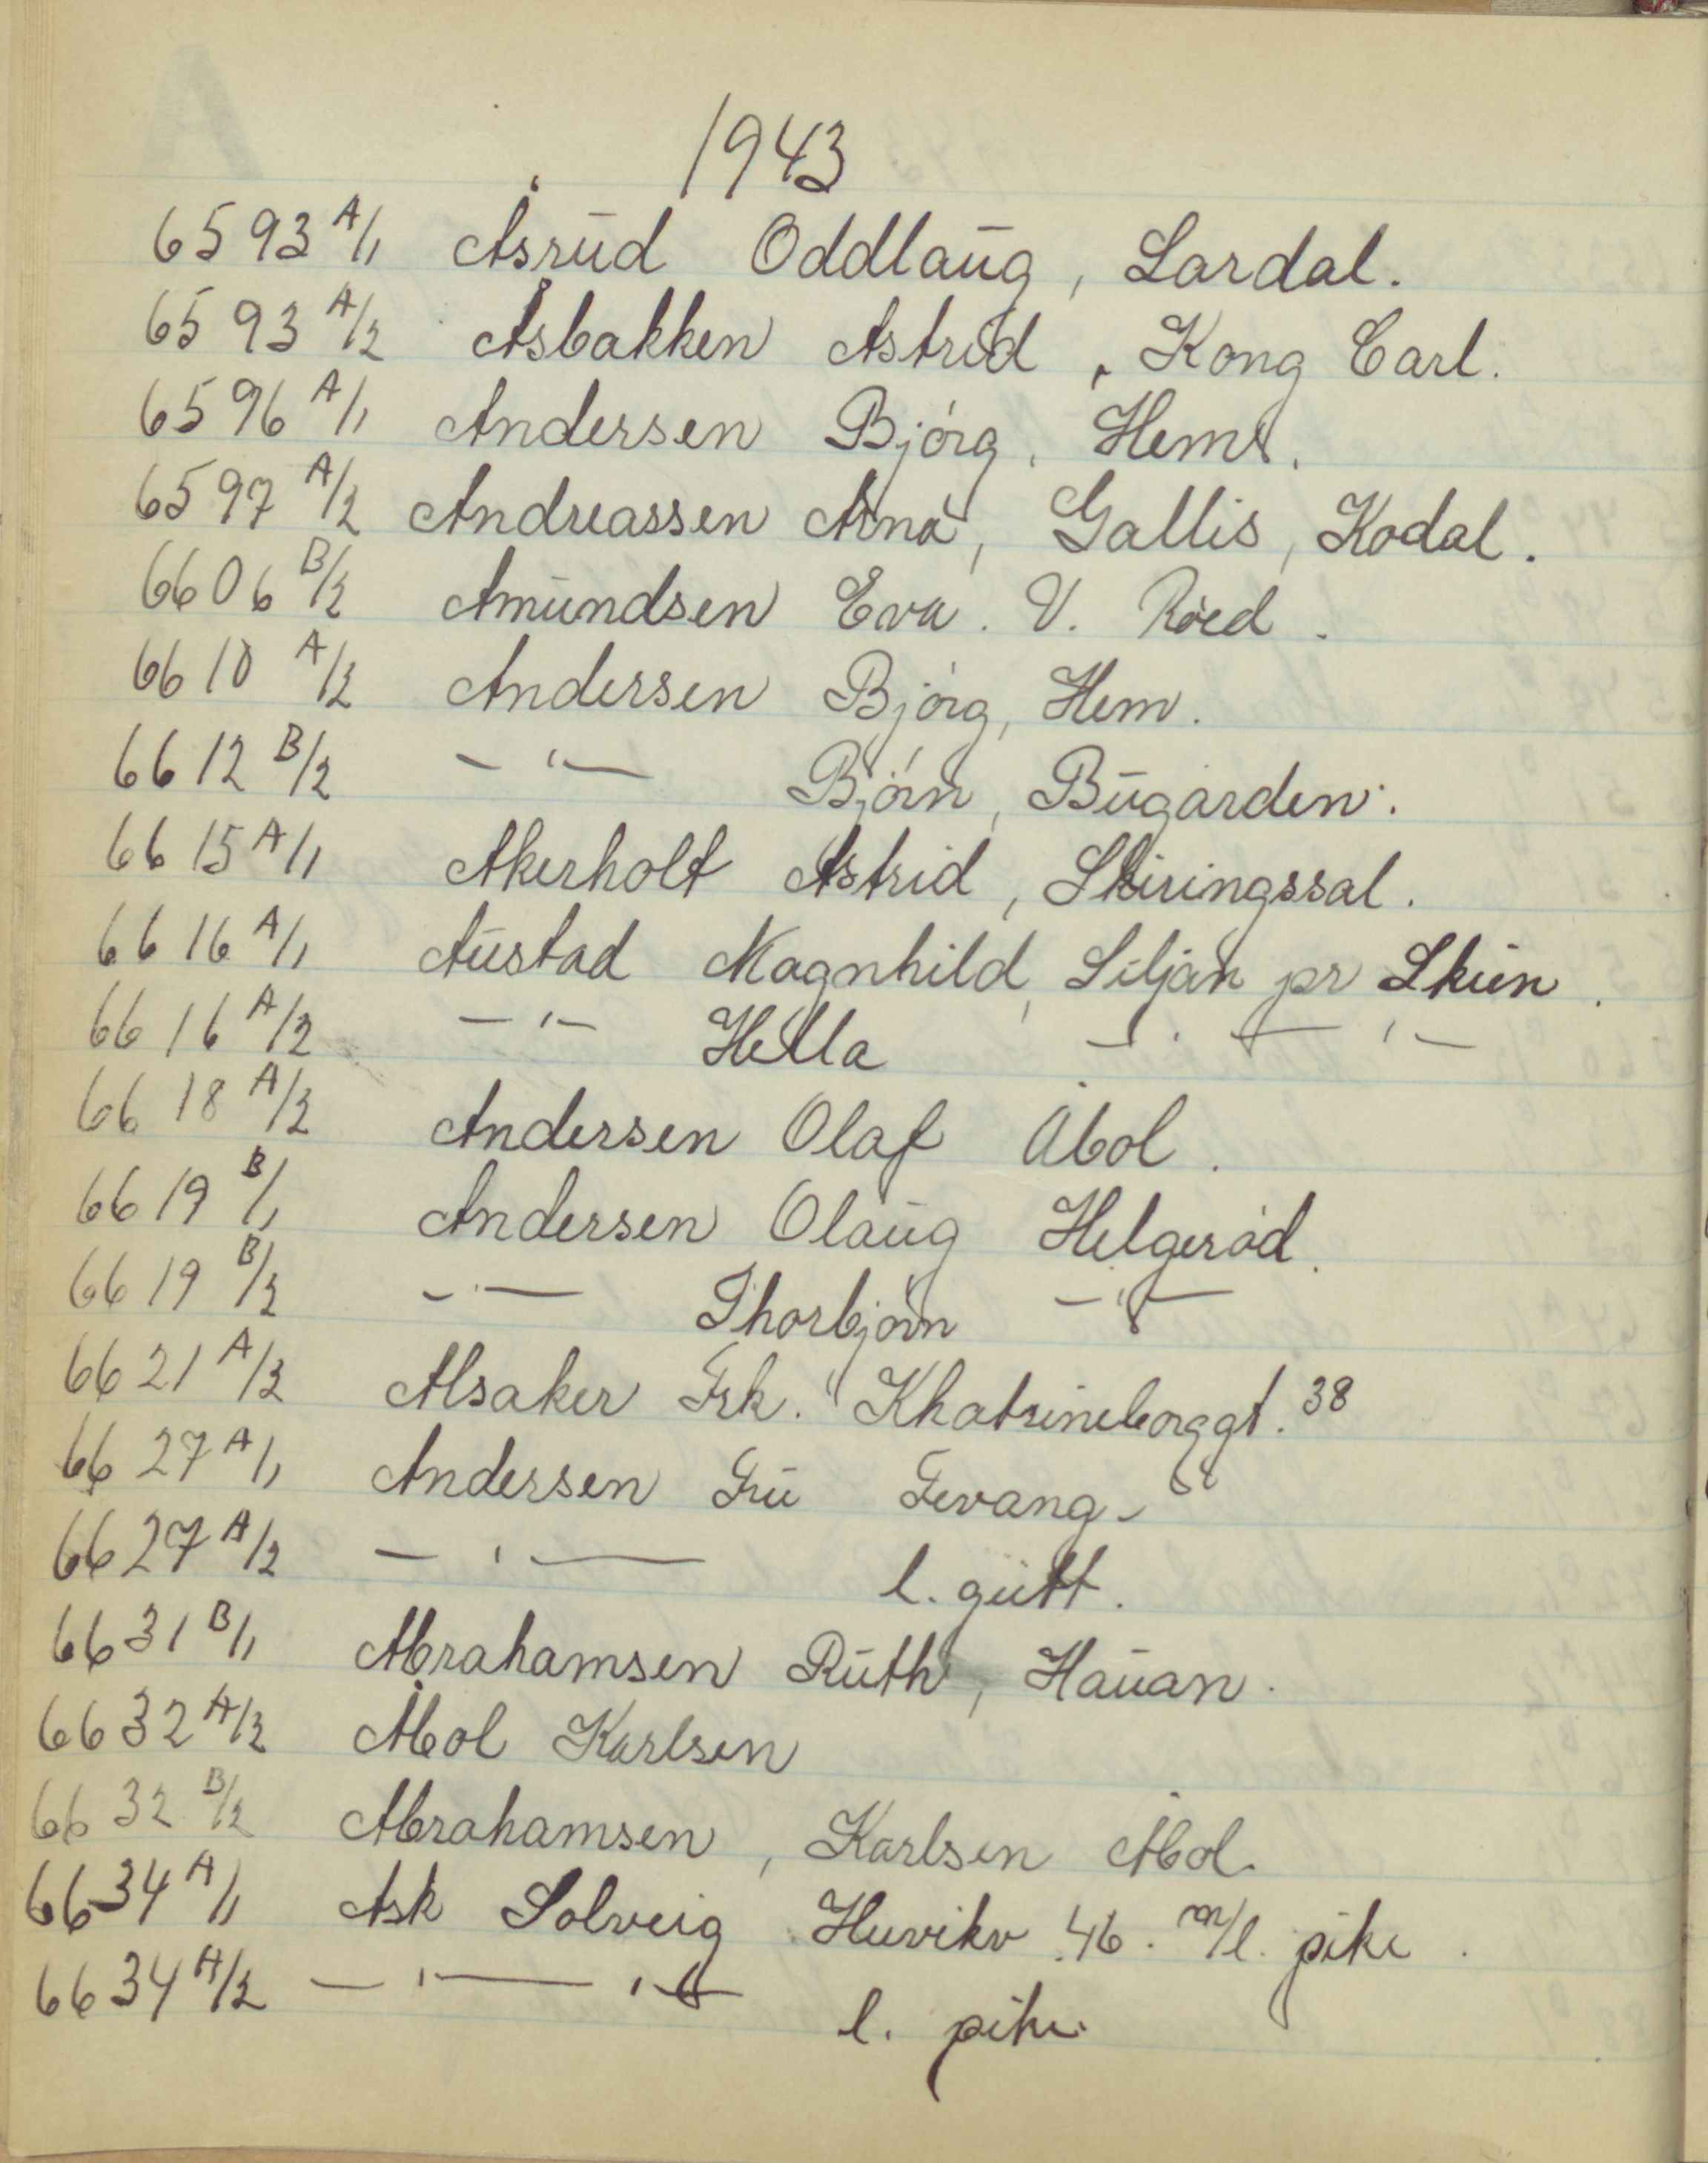 1943
6593 A/1 Åsrud Oddlaug, Lardal.
6593 A/2 Åsbakken Astrid, Kong Carl.
6596 A/1 Andersen Bjørg, Hem.
6597 A/2 Andreassen Arna, Gallis, Kodal.
6606 B/2 Amundsen Eva. V. Røed.
6610 A/2 Andersen Bjørg, Hem.
6612 B/2 — " — Bjørn, Bugården.
6615 A/1 Akerholt Astrid, Skiringssal.
6616 A/1 Austad Magnhild, Siljan pr Skien.
6616 A/2 — " — Hella — " — " —
6618 A/2 Andersen Olaf Åbol.
6619 B/1 Andersen Olaug Helgerød.
6619 B/2 — " — Thorbjørn — " —
6621 A/2 Alsaker Frk. Khatrineborggt. 38
6627 A/1 Andersen Fru Fevang.
6627 A/2 — " — l. gutt.
6631 B/1 Abrahamsen Ruth, Hauan.
6632 A/2 Åbol Karlsen
6632 B/2 Abrahamsen, Karlsen Åbol.
6634 A/1 Ask Solveig Huvikv. 46. m/l. pike.
6634 A/2 — " — " — l. pike.